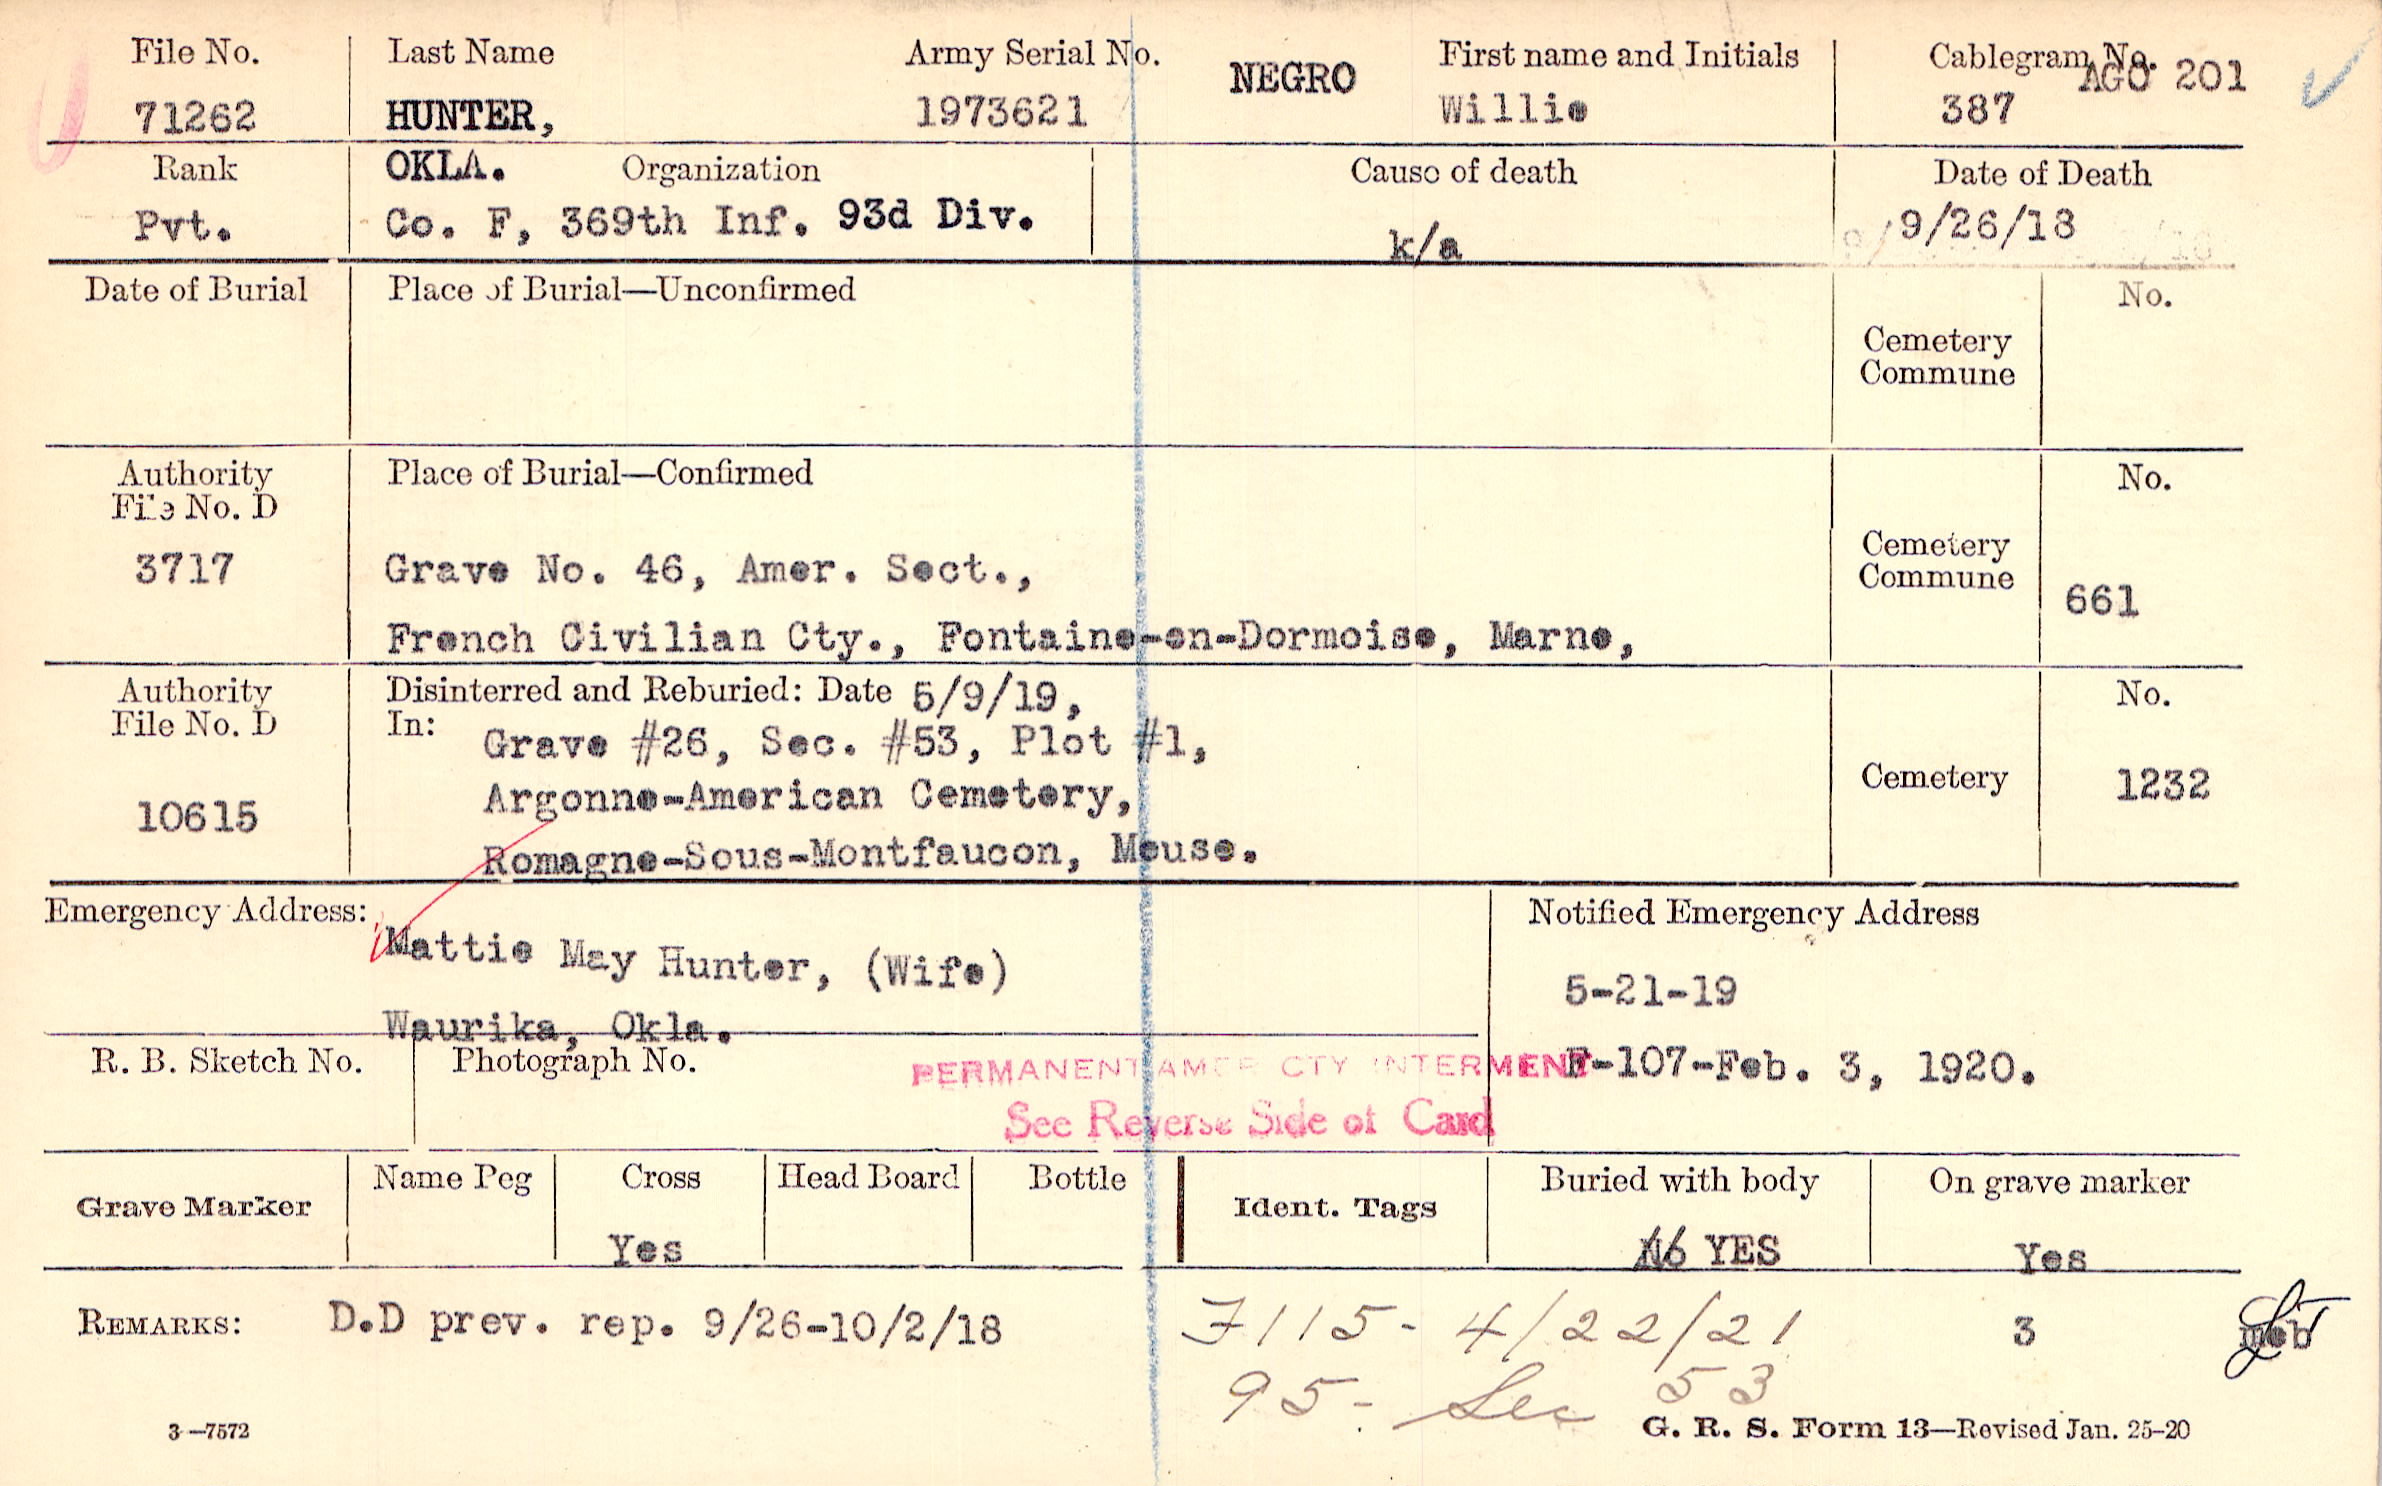 File No. Last Name Army Serial No. NEGRO First name and Initials Cablegram No. AGO 201
71262 HUNTER, 1973621 Willie 387
Rank OKLA. Organization Cause of death Date of Death
Pvt. Co. F, 369th Inf. 93d Div. k/a 9/26/18
Date of Burial Place of Burial—Unconfirmed No.
Cemetery
Commune
Authority Place of Burial—Confirmed No.
File No. D
3717 Grave No. 46, Amer. Sect., Cemetery
Commune 661
French Civilian Cty., Fontaine-en-Dormoise, Marne,
Authority Disinterred and Reburied: Date 5/9/19, No.
File No. D In: Grave #26, Sec. #53, Plot #1,
10615 Argonne-American Cemetery, Cemetery 1232
Romagne-Sous-Montfaucon, Meuse.
Emergency Address: Notified Emergency Address
Mattie May Hunter, (Wife) 5-21-19
Waurika, Okla.
R. B. Sketch No. Photograph No. PERMANENT AMER CTY INTERMENT F-107-Feb. 3, 1920.
See Reverse Side of Card
Grave Marker Name Peg Cross Head Board Bottle Ident. Tags Buried with body On grave marker
Yes No YES Yes
REMARKS: D.D prev. rep. 9/26-10/2/18 7115- 4/22/21 3 meb
95- Sec 53
3—7572 G. R. S. Form 13—Revised Jan. 25-20